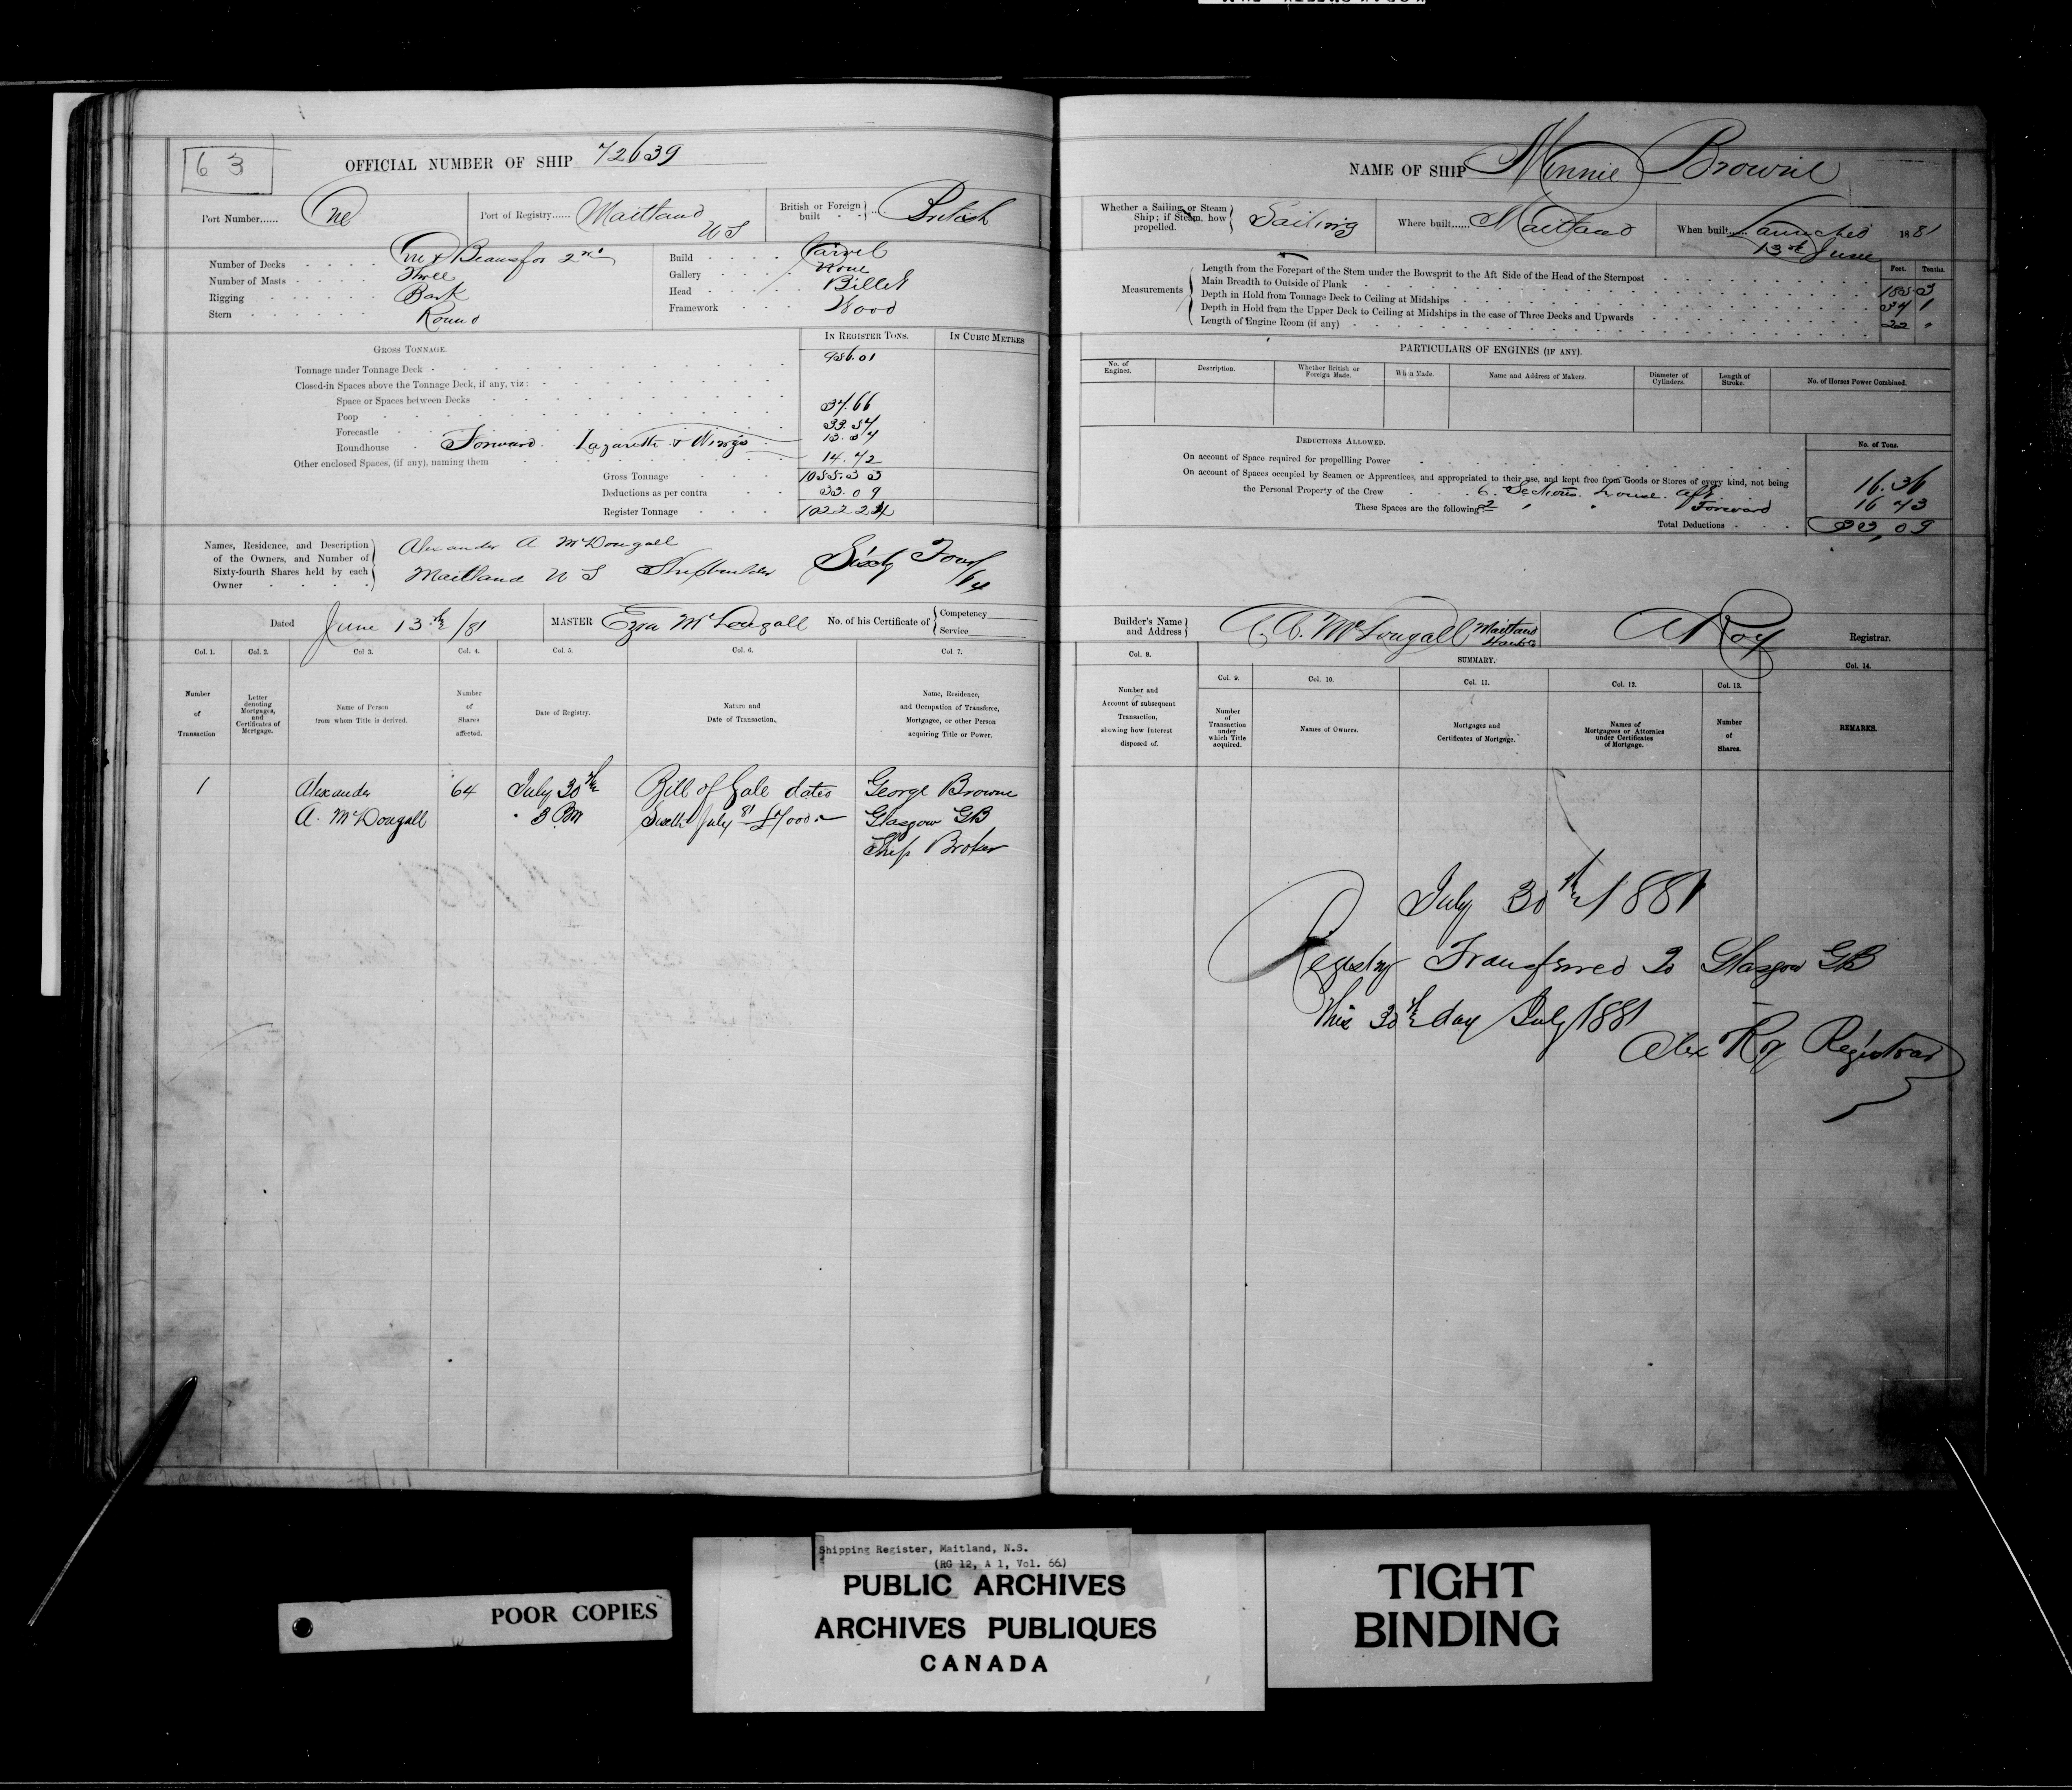 63
OFFICIAL NUMBER OF SHIP 72639
Port Number...... One
Port of Registry...... Maitland NS
British or Foreign built British
Number of Decks One & Beams for 2nd
Number of Masts Three
Rigging Bark
Stern Round
Build Carvel
Gallery None
Head Billet
Framework Wood
GROSS TONNAGE.
IN REGISTER TONS.
IN CUBIC METRES
Tonnage under Tonnage Deck 956.01
Closed-in Spaces above the Tonnage Deck, if any, viz:
Space or Spaces between Decks
Poop 37.66
Forecastle 33.54
Roundhouse Forward. Lazarette & Wings
Other enclosed Spaces, (if any), naming them 14.42
Gross Tonnage 1055.33
Deductions as per contra 33.09
Register Tonnage 1022.24
Names, Residence, and Description of the Owners, and Number of Sixty-fourth Shares held by each Owner
Alexander A McDougall
Maitland NS Shipbuilder Sixty Four/64
Dated June 13th/81
MASTER Ezra McDougall
No. of his Certificate of Competency Service
Col. 1. Col. 2. Col 3. Col. 4. Col. 5. Col. 6. Col 7.
Number of Transaction
Letter denoting Mortgages, and Certificates of Mortgage.
Name of Person from whom Title is derived.
Number of Shares affected.
Date of Registry.
Nature and Date of Transaction.
Name, Residence, and Occupation of Transferee, Mortgagee, or other Person acquiring Title or Power.
1 Alexander 64 July 30th Bill of Sale dated George Browne
A. McDougall 3 Pm July 81 Glasgow GB
Ship Broker
NAME OF SHIP Minnie Browne
Whether a Sailing or Steam Ship; if Steam, how propelled. Sailing
Where built...... Maitland
When built.... Launched 1881
13th June
Measurements
Feet. Tenths.
Length from the Forepart of the Stem under the Bowsprit to the Aft Side of the Head of the Sternpost 185 3
Main Breadth to Outside of Plank 34 1
Depth in Hold from Tonnage Deck to Ceiling at Midships 22
Depth in Hold from the Upper Deck to Ceiling at Midships in the case of Three Decks and Upwards
Length of Engine Room (if any)
PARTICULARS OF ENGINES (IF ANY).
No. of Engines.
Description.
Whether British or Foreign Made.
When Made.
Name and Address of Makers.
Diameter of Cylinders.
Length of Stroke.
No. of Horses Power Combined.
DEDUCTIONS ALLOWED.
No. of Tons.
On account of Space required for propellling Power
On account of Spaces occupied by Seamen or Apprentices, and appropriated to their use, and kept free from Goods or Stores of every kind, not being
the Personal Property of the Crew 6 Sections house aft 16.36
These Spaces are the following: 2 " " Forward 16 73
Total Deductions 33,09
Builder's Name and Address A. A. McDougall Maitland Hants Co
A Roy Registrar.
Col. 8.
Number and Account of subsequent Transaction, showing how Interest disposed of.
SUMMARY.
Col. 9. Col. 10. Col. 11. Col. 12. Col. 13. Col. 14.
Number of Transaction under which Title acquired.
Names of Owners.
Mortgages and Certificates of Mortgage.
Names of Mortgagees or Attornies under Certificates of Mortgage.
Number of Shares.
REMARKS.
July 30th 1881
Registry Transferred To Glasgow GB
This 30th day July 1881
Alex Roy Registrar
POOR COPIES
Shipping Register, Maitland, N.S.
(RG 12, A 1, Vol. 66)
PUBLIC ARCHIVES
ARCHIVES PUBLIQUES
CANADA
TIGHT
BINDING